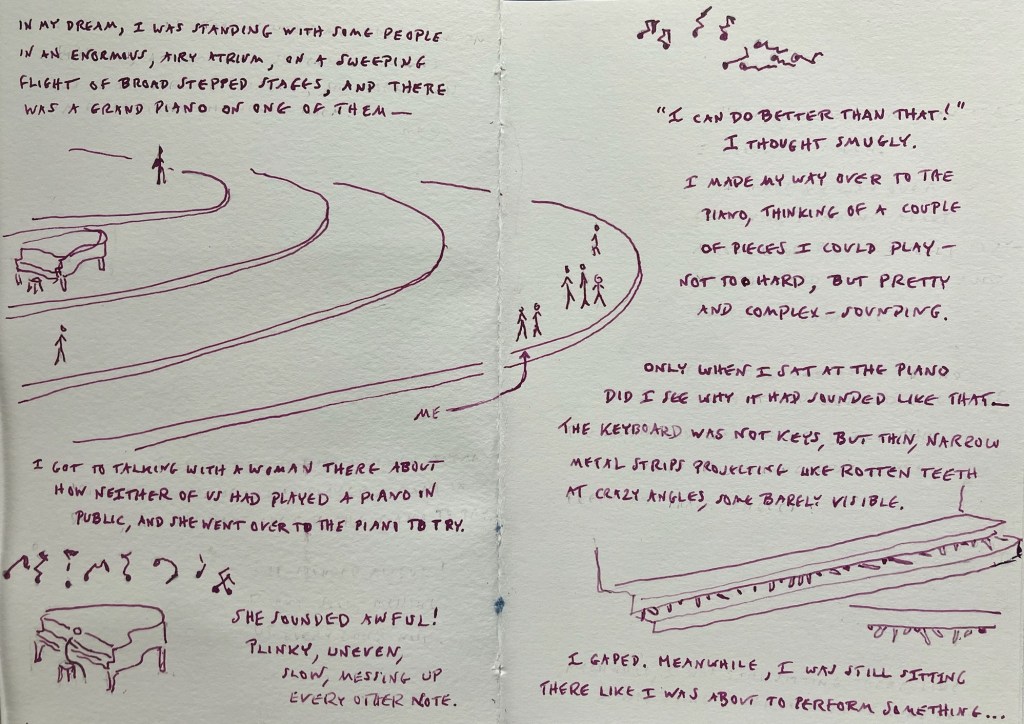 IN MY DREAM, I WAS STANDING WITH SOME PEOPLE
IN AN ENORMOUS, AIRY ATRIUM, ON A SWEEPING
FLIGHT OF BROAD STEPPED STAGES, AND THERE
WAS A GRAND PIANO ON ONE OF THEM—
ME
I GOT TO TALKING WITH A WOMAN THERE ABOUT
HOW NEITHER OF US HAD PLAYED A PIANO IN
PUBLIC, AND SHE WENT OVER TO THE PIANO TO TRY.
SHE SOUNDED AWFUL!
PLINKY, UNEVEN,
SLOW, MESSING UP
EVERY OTHER NOTE.
"I CAN DO BETTER THAN THAT!"
I THOUGHT SMUGLY.
I MADE MY WAY OVER TO THE
PIANO, THINKING OF A COUPLE
OF PIECES I COULD PLAY—
NOT TOO HARD, BUT PRETTY
AND COMPLEX-SOUNDING.
ONLY WHEN I SAT AT THE PIANO
DID I SEE WHY IT HAD SOUNDED LIKE THAT—
THE KEYBOARD WAS NOT KEYS, BUT THIN, NARROW
METAL STRIPS PROJECTING LIKE ROTTEN TEETH
AT CRAZY ANGLES, SOME BARELY VISIBLE.
I GAPED. MEANWHILE, I WAS STILL SITTING
THERE LIKE I WAS ABOUT TO PERFORM SOMETHING...